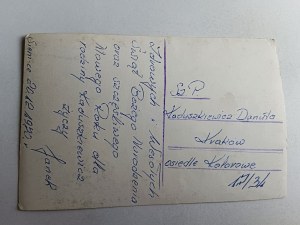 Zdrowych i Wesołych
Świąt Bożego Narodzenia
oraz szczęśliwego
Nowego Roku dla
rodziny Kaduszkiewicz
życzy
Janek
Sz P
Kaduszkiewicz Danuta
Kraków
osiedle Kolorowe